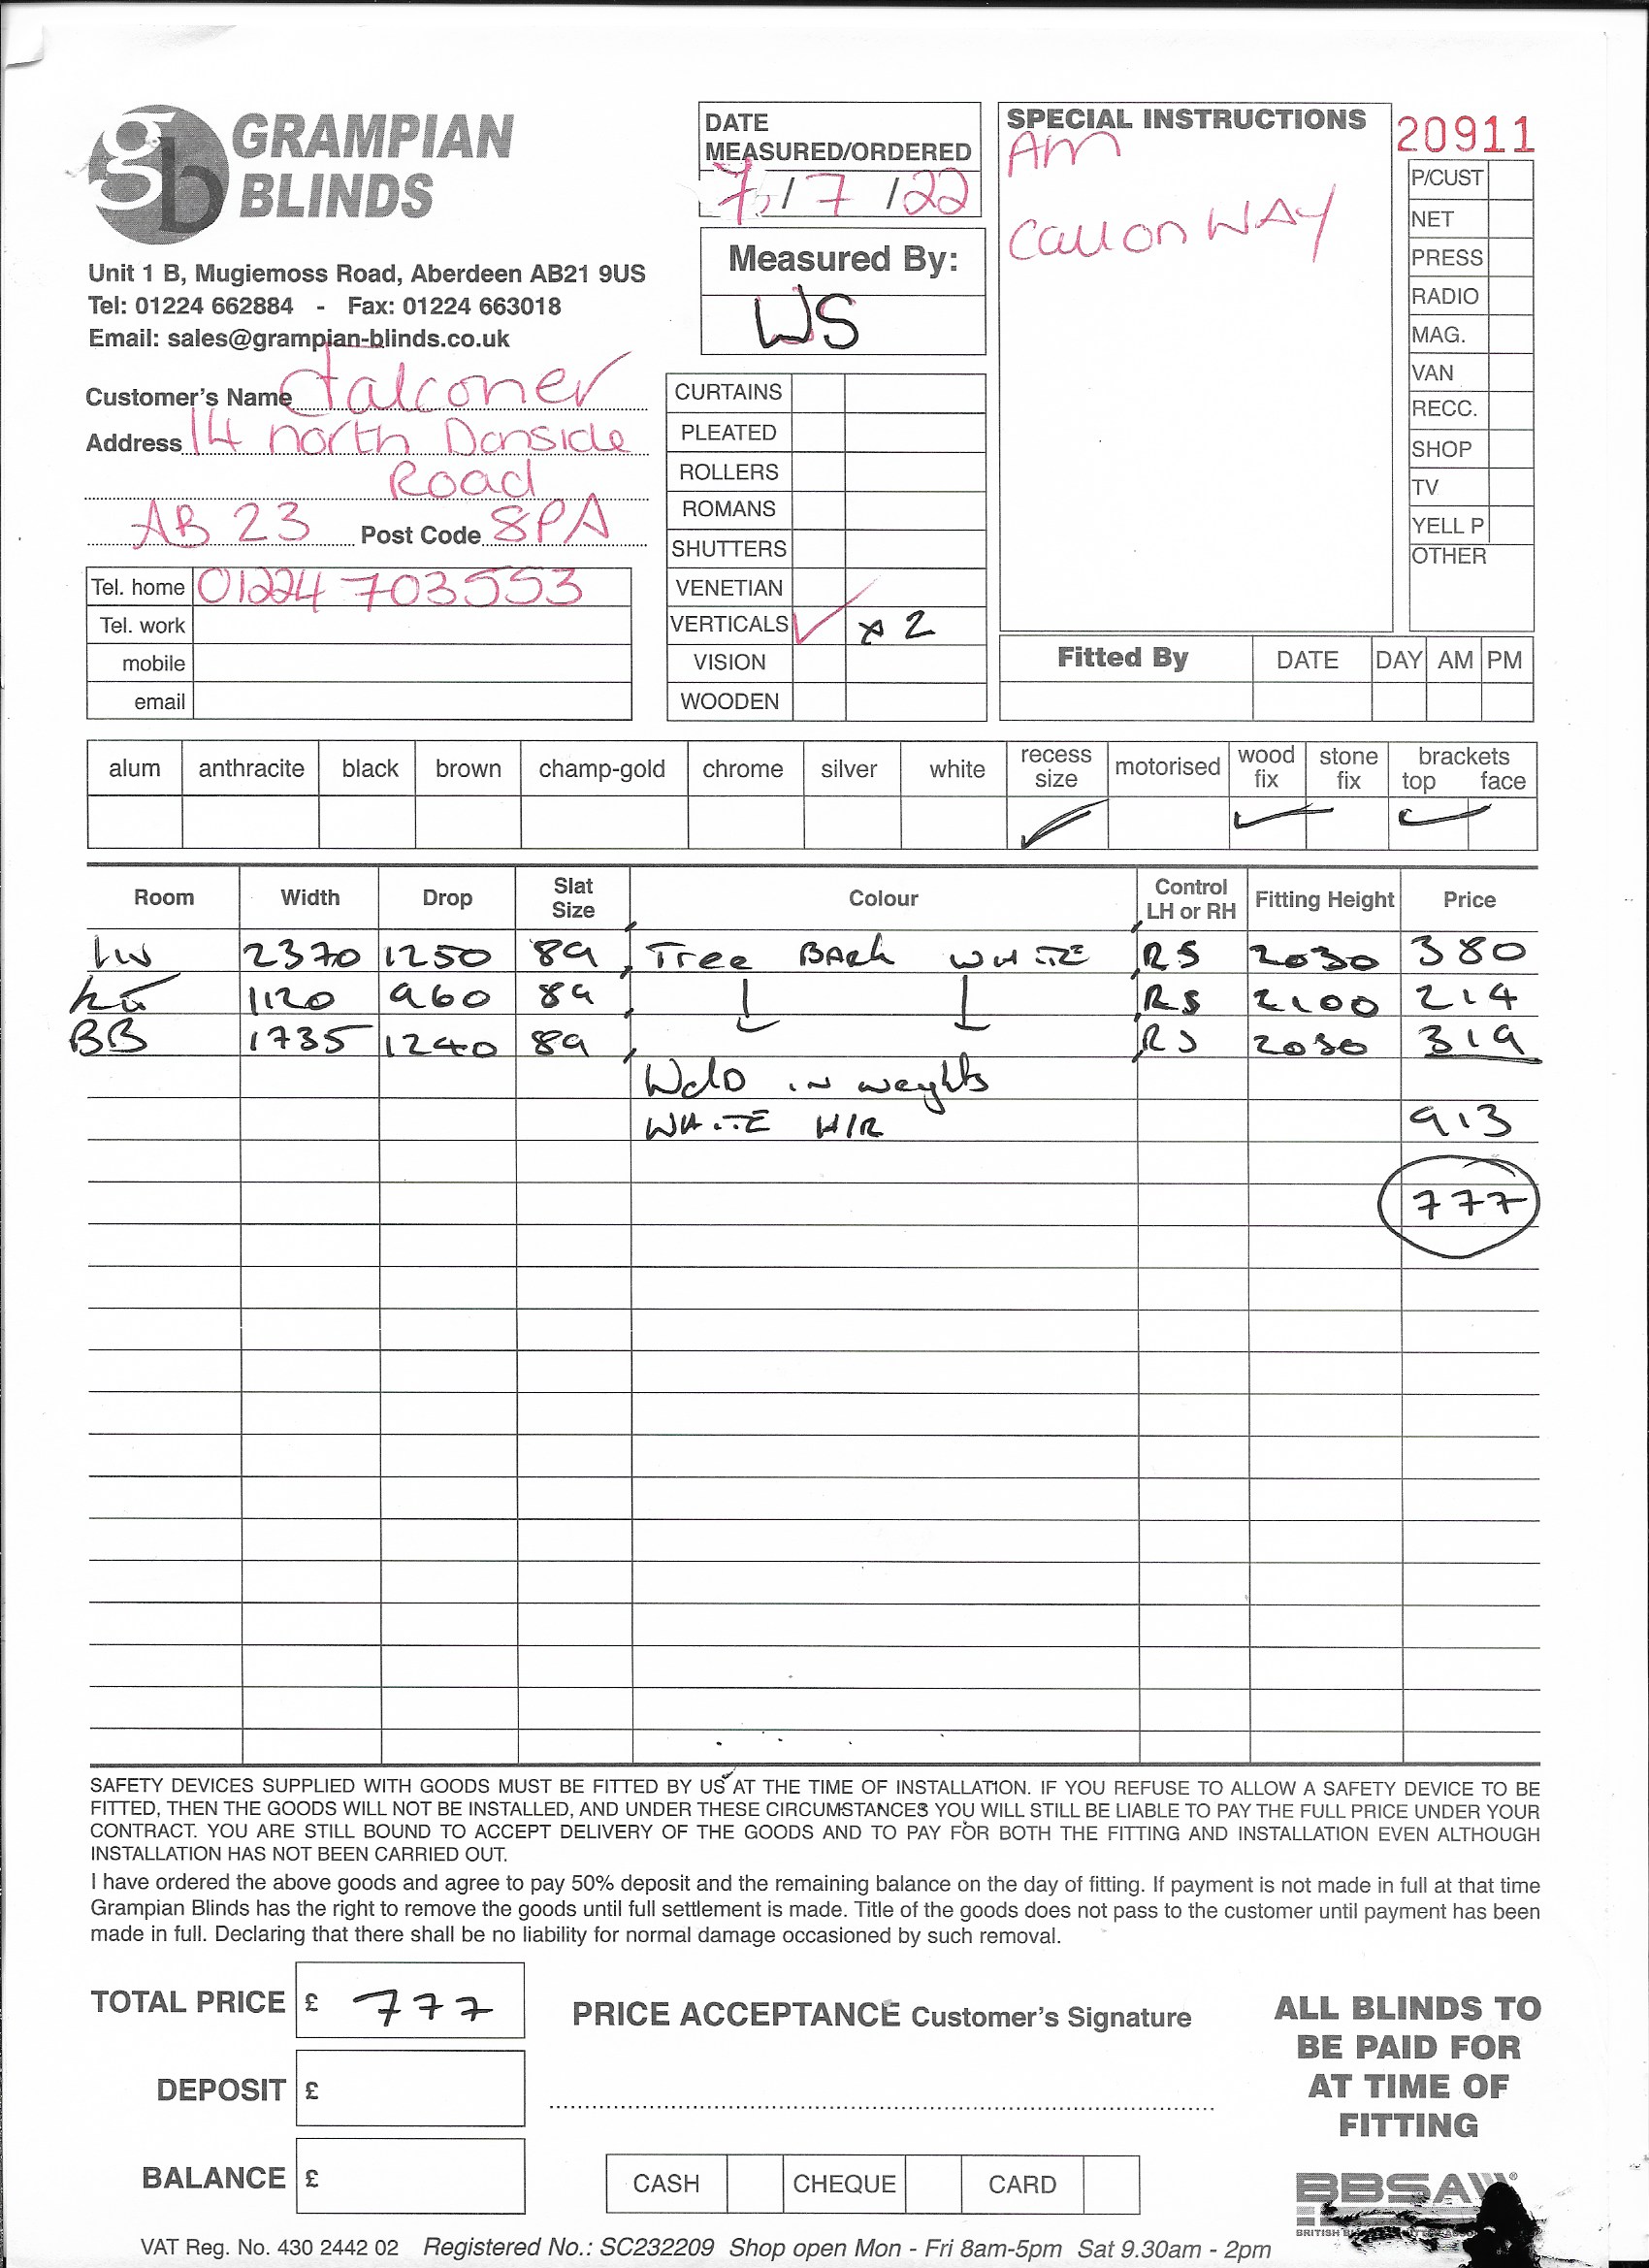 GRAMPIAN
BLINDS
Unit 1 B, Mugiemoss Road, Aberdeen AB21 9US
Tel: 01224 662884 - Fax: 01224 663018
Email: sales@grampian-blinds.co.uk
DATE
MEASURED/ORDERED
7/7/22
Measured By:
WS
SPECIAL INSTRUCTIONS
Am
Call on WAY
20911
P/CUST
NET
PRESS
RADIO
MAG.
VAN
RECC.
SHOP
TV
YELL P
OTHER
Customer's Name Falconer
Address 14 north Donside
Road
AB 23 Post Code 8PA
Tel. home 01224 703553
Tel. work
mobile
email
CURTAINS
PLEATED
ROLLERS
ROMANS
SHUTTERS
VENETIAN
VERTICALS ✓ x 2
VISION
WOODEN
Fitted By DATE DAY AM PM
alum anthracite black brown champ-gold chrome silver white recess size motorised wood fix stone fix brackets top face
Room Width Drop Slat Size Colour Control LH or RH Fitting Height Price
2370 1250 89 Tree BARk WHITE RS 2030 380
1120 960 89 RS 2100 214
BB 1735 1240 89 RS 2030 319
in weights
WHITE H/R 913
777
SAFETY DEVICES SUPPLIED WITH GOODS MUST BE FITTED BY US AT THE TIME OF INSTALLATION. IF YOU REFUSE TO ALLOW A SAFETY DEVICE TO BE
FITTED, THEN THE GOODS WILL NOT BE INSTALLED, AND UNDER THESE CIRCUMSTANCES YOU WILL STILL BE LIABLE TO PAY THE FULL PRICE UNDER YOUR
CONTRACT. YOU ARE STILL BOUND TO ACCEPT DELIVERY OF THE GOODS AND TO PAY FOR BOTH THE FITTING AND INSTALLATION EVEN ALTHOUGH
INSTALLATION HAS NOT BEEN CARRIED OUT.
I have ordered the above goods and agree to pay 50% deposit and the remaining balance on the day of fitting. If payment is not made in full at that time
Grampian Blinds has the right to remove the goods until full settlement is made. Title of the goods does not pass to the customer until payment has been
made in full. Declaring that there shall be no liability for normal damage occasioned by such removal.
TOTAL PRICE £ 777
DEPOSIT £
BALANCE £
PRICE ACCEPTANCE Customer's Signature
CASH CHEQUE CARD
ALL BLINDS TO
BE PAID FOR
AT TIME OF
FITTING
BBSA
BRITISH
VAT Reg. No. 430 2442 02 Registered No.: SC232209 Shop open Mon - Fri 8am-5pm Sat 9.30am - 2pm